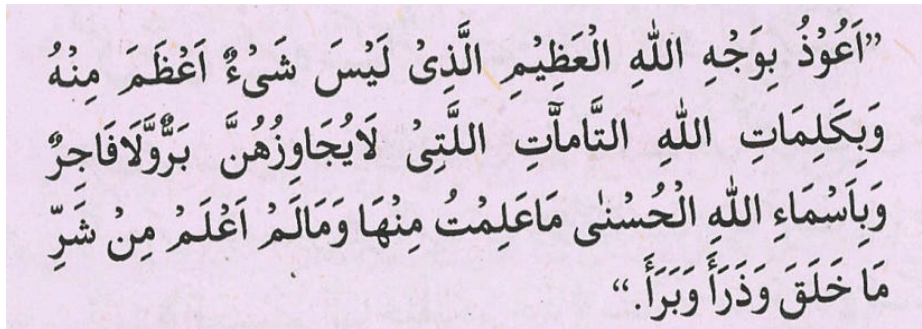 ”اَعُوْذُ بِوَجْهِ اللّٰهِ الْعَظِيْمِ الَّذِىْ لَيْسَ شَىْءٌ اَعْظَمَ مِنْهُ
وَبِكَلِمَاتِ اللّٰهِ التَّامآَّتِ اللَّتِىْ لَايُجَاوِزُهُنَّ بَرٌّوَّلَافَاجِرٌ
وَبِاَسْمَاءِ اللّٰهِ الْحُسْنٰى مَاعَلِمْتُ مِنْهَا وَمَالَمْ اَعْلَمْ مِنْ شَرِّ
مَا خَلَقَ وَذَرَأَ وَبَرَأَ.“